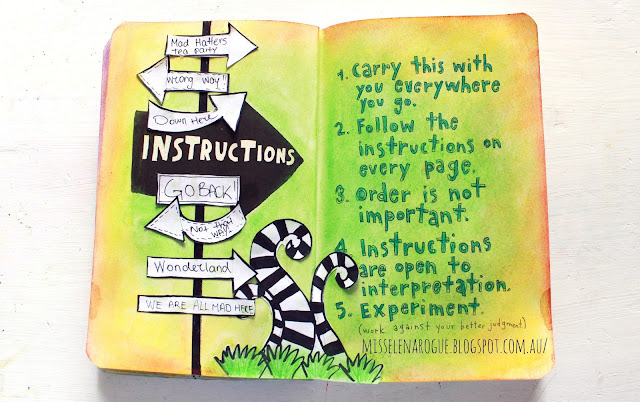 Mad Hatters
tea party
Wrong way!!
Down Here
INSTRUCTIONS
GO BACK!
Not that
way.
Wonderland
WE ARE ALL MAD HERE
1. Carry this with
you everywhere
you go.
2. Follow the
instructions on
every page.
3. Order is not
important.
4. Instructions
are open to
interpretation.
5. Experiment.
(work against your better judgment)
MISSELENAROGUE.BLOGSPOT.COM.AU/